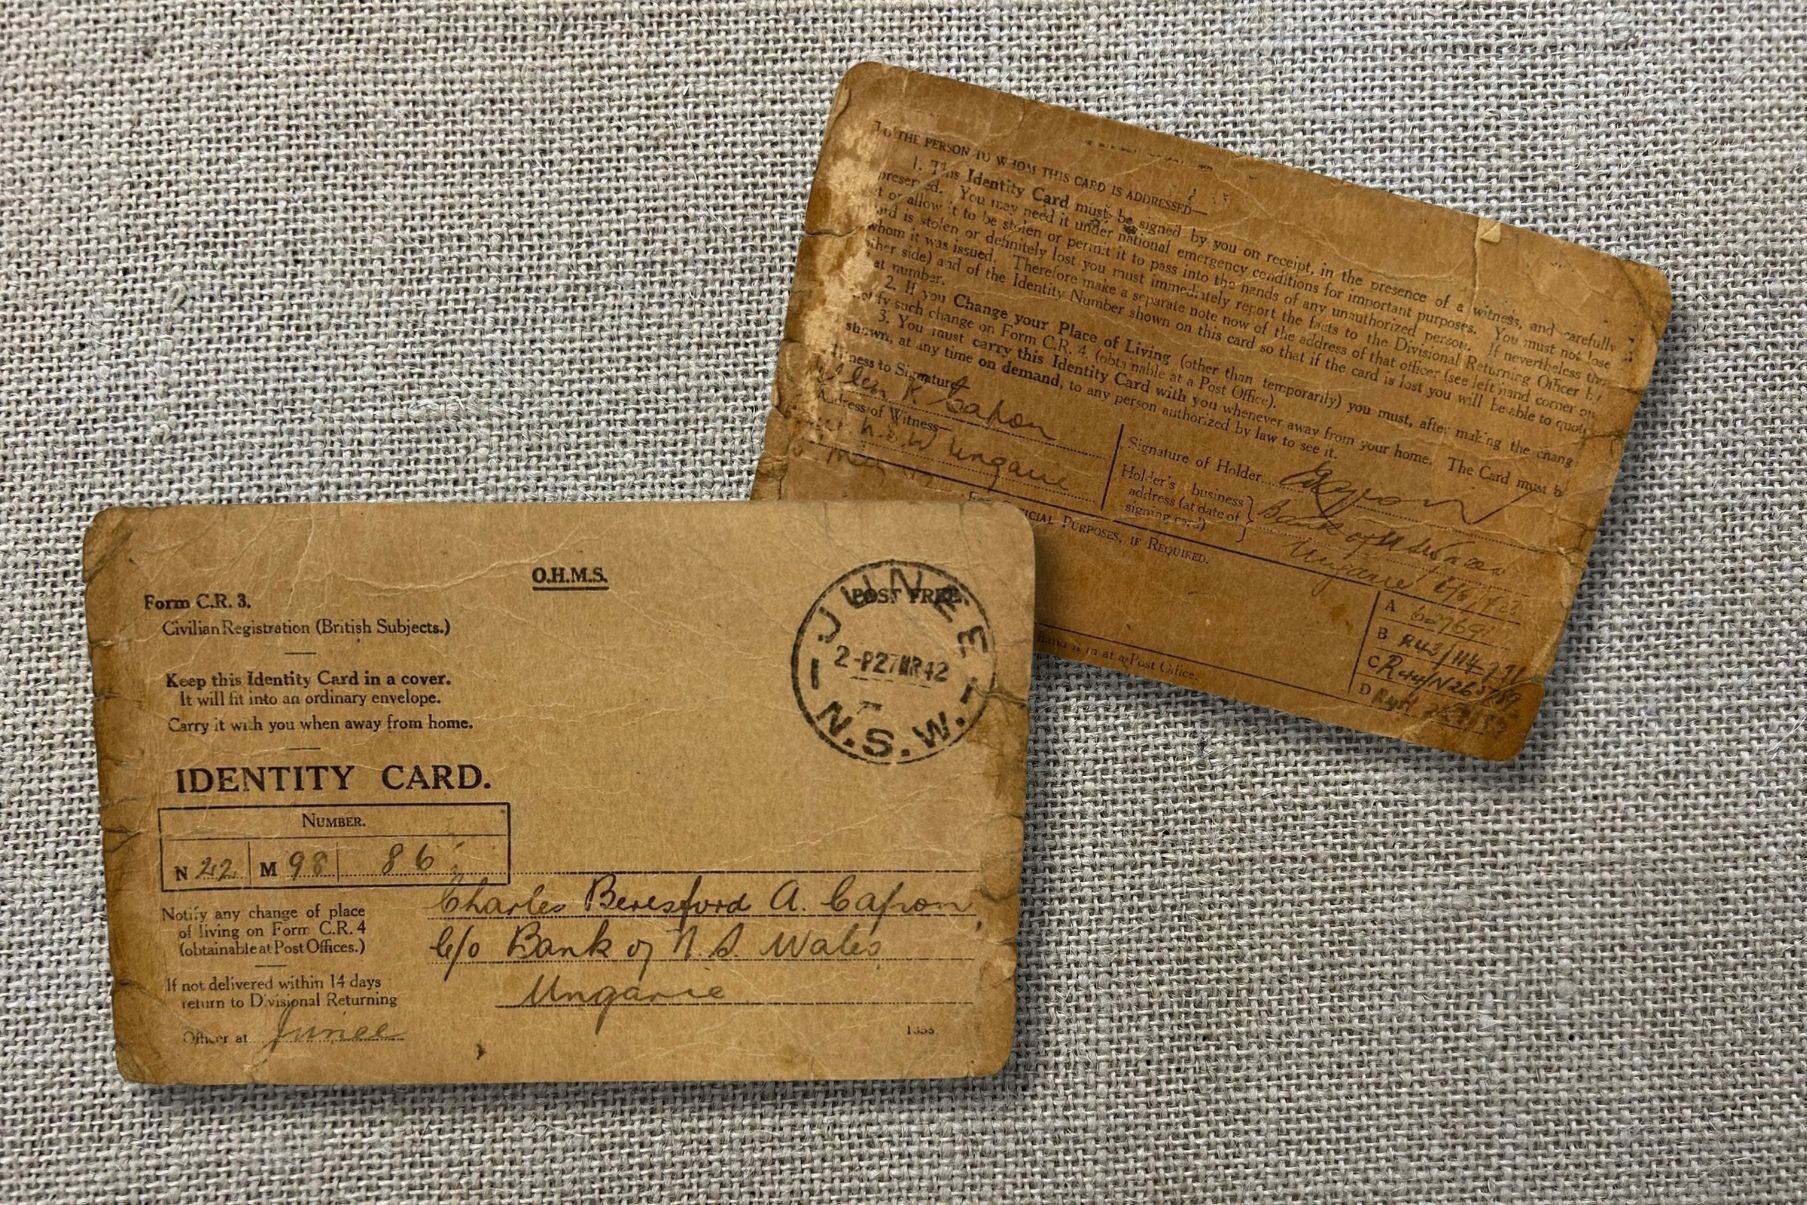 O.H.M.S.
Form C.R. 3.
POST FREE
JUNEE
2-P27MR42
N.S.W.
Civilian Registration (British Subjects.)
Keep this Identity Card in a cover.
It will fit into an ordinary envelope.
Carry it with you when away from home.
IDENTITY CARD.
NUMBER.
N 22 M 98 86
Charles Beresford A. Capon
Notify any change of place
of living on Form C.R. 4
(obtainable at Post Offices.)
C/o Bank of N. S. Wales
Ungarie
If not delivered within 14 days
return to Divisional Returning
Officer at Junee
TO THE PERSON TO WHOM THIS CARD IS ADDRESSED—
1. This Identity Card must be signed by you on receipt, in the presence of a witness, and carefully
preserved. You may need it under national emergency conditions for important purposes. You must not lose
it or allow it to be stolen or permit it to pass into the hands of any unauthorized person. If nevertheless the
card is stolen or definitely lost you must immediately report the facts to the Divisional Returning Officer by
whom it was issued. Therefore make a separate note now of the address of that officer (see left hand corner on
other side) and of the Identity Number shown on this card so that if the card is lost you will be able to quote
that number.
2. If you Change your Place of Living (other than temporarily) you must, after making the change
notify such change on Form C.R. 4 (obtainable at a Post Office).
3. You must carry this Identity Card with you whenever away from your home. The Card must be
shown, at any time on demand, to any person authorized by law to see it.
Witness to Signature
K Capon
Address of Witness
Ungarie
Signature of Holder
Holder's business
address (at date of
signing card)
Bank of N S Wales
Ungarie
OFFICIAL PURPOSES, IF REQUIRED.
hand it in at a Post Office.
A
B
C
D